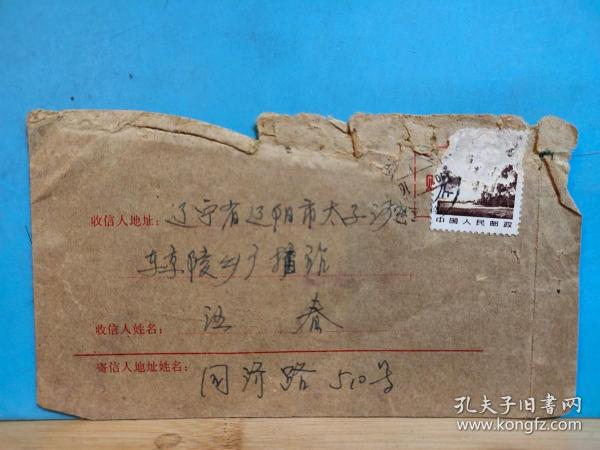 中国人民邮政
收信人地址：辽宁省辽阳市太子河区
东京陵乡广播站
收信人姓名：汪 春
寄信人地址姓名：国济路510号
孔夫子旧书网
www.kongfz.com